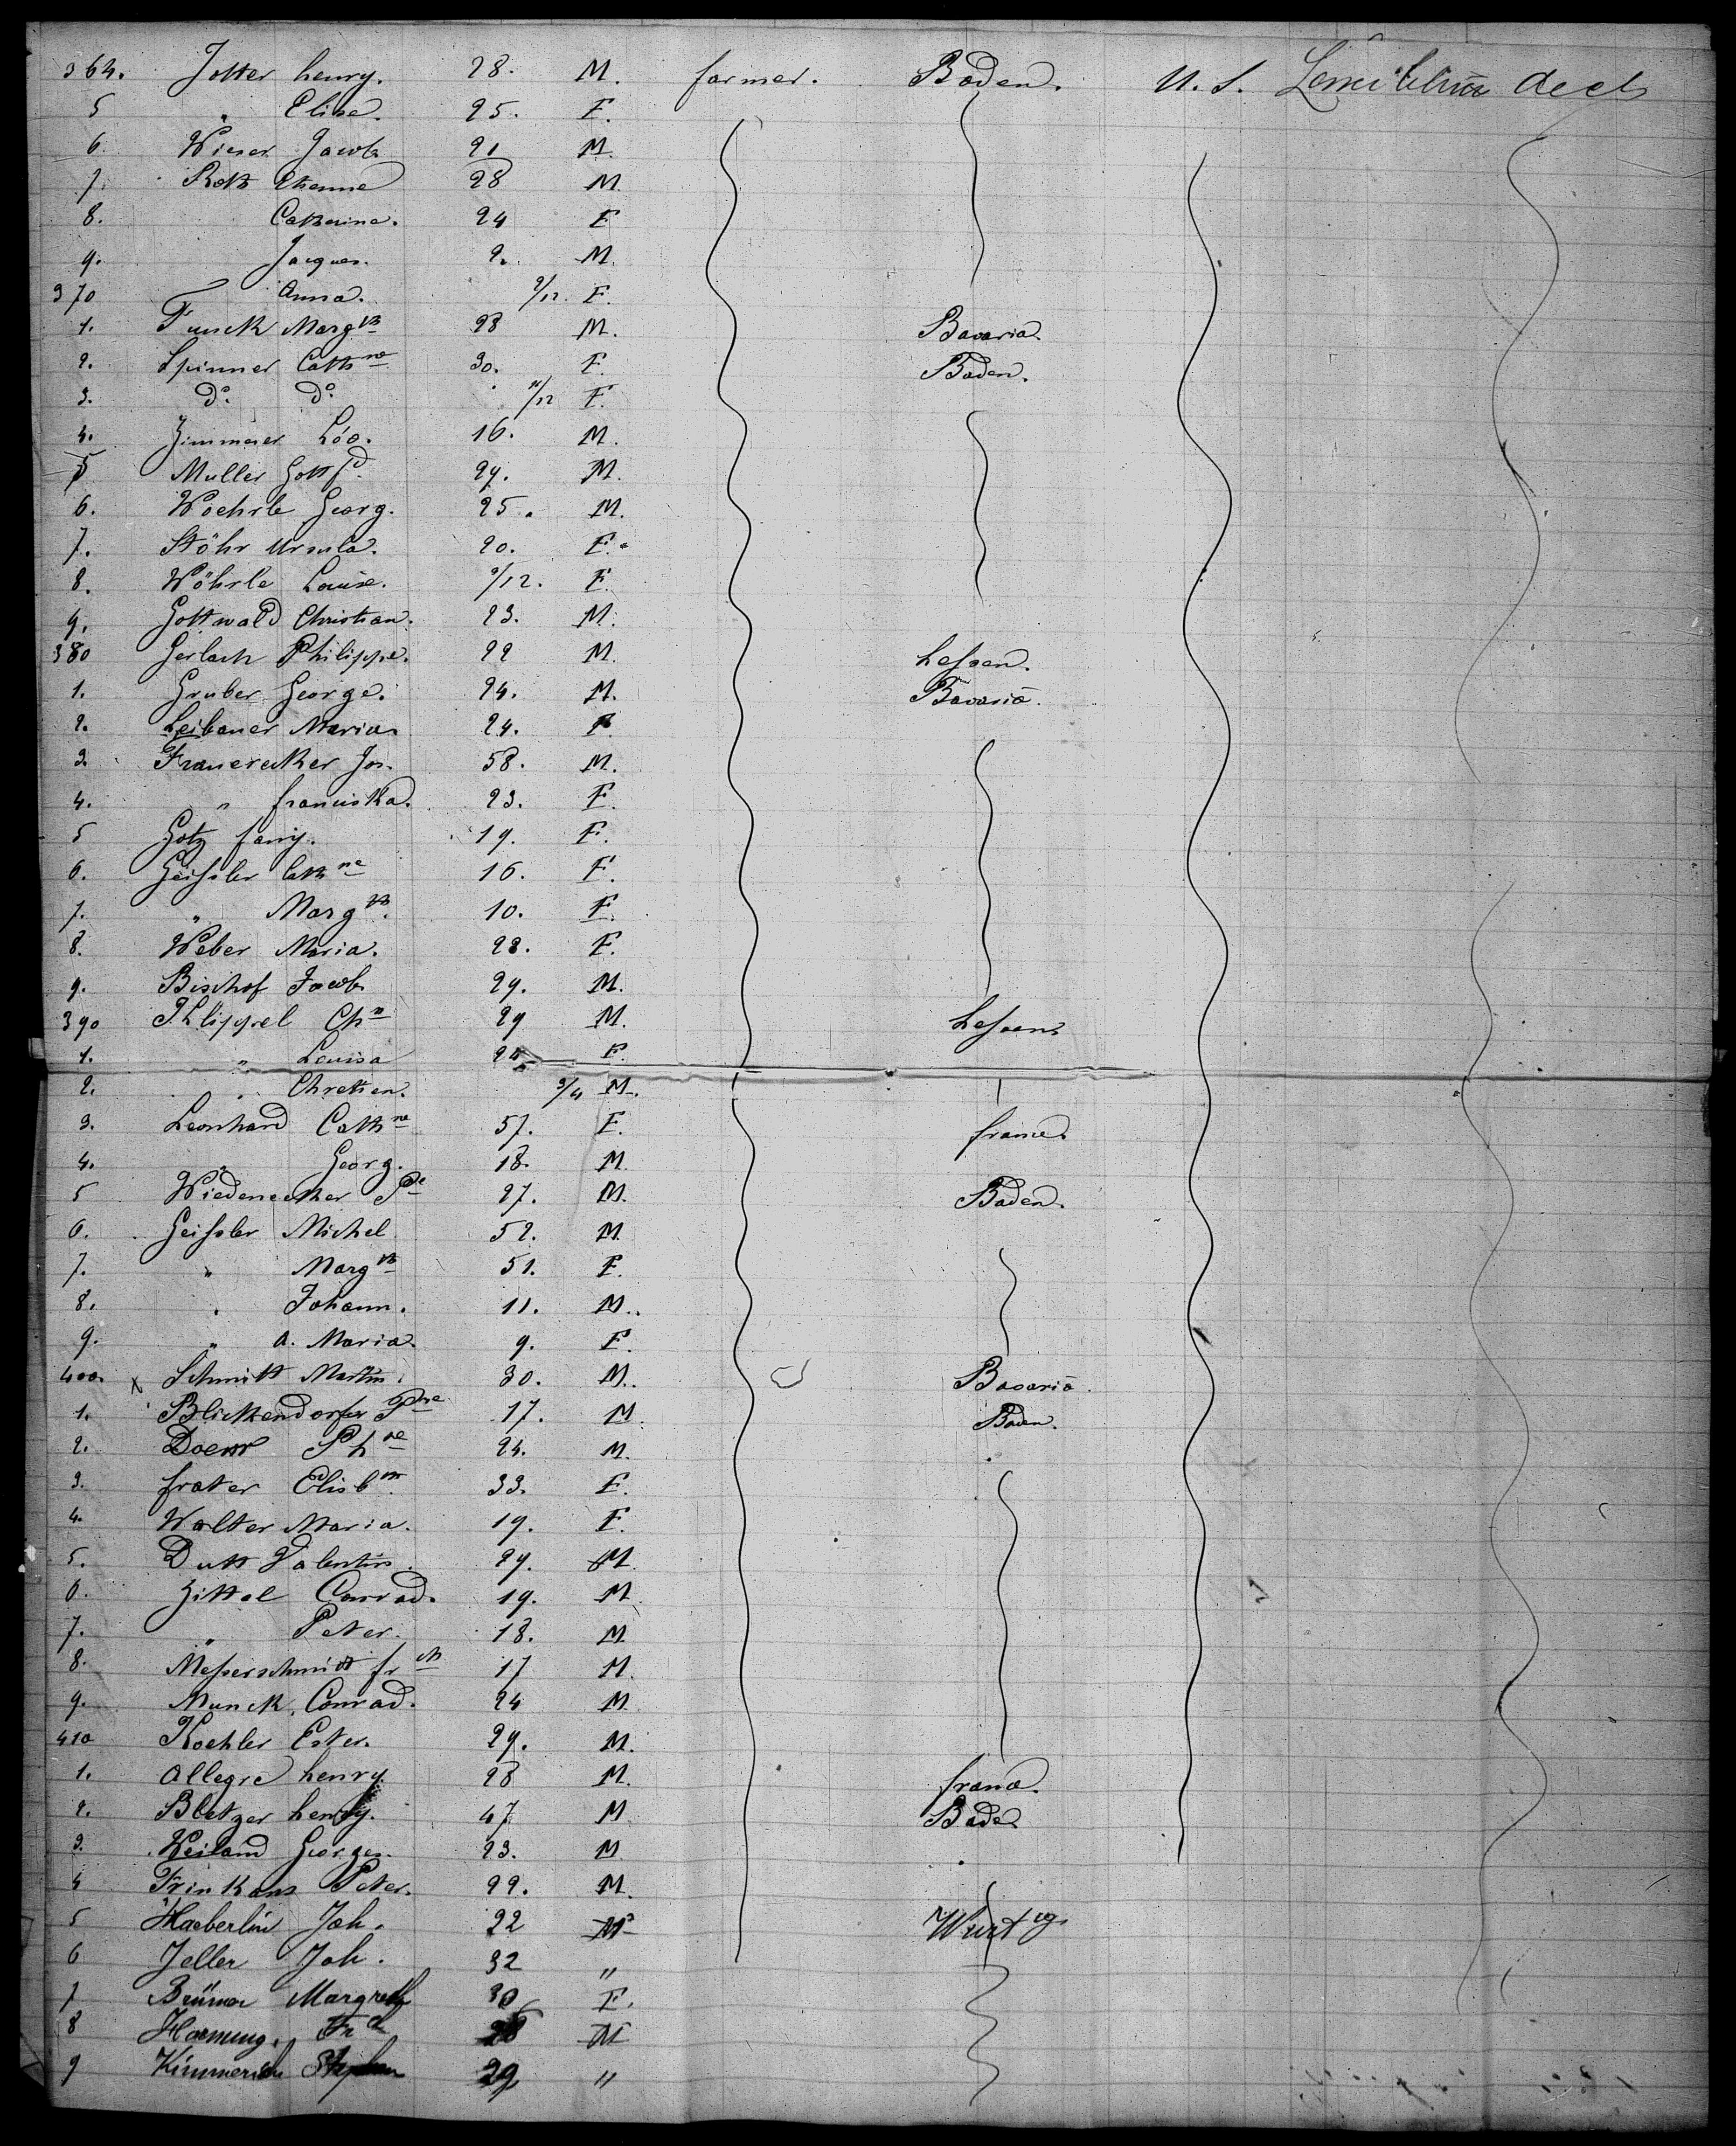 364. Jotter henry. 28. M. farmer. Baden. U. S. decl
5 " Elise. 25. F.
6. Wieser Jacob 21 M.
7. Roth Etienne 28 M.
8. Catherine. 24 F
9. Jacques. 2. M.
370 Anna. 9/12. F.
1. Funck Marg th 28 M. Bavaria
2. Spinner Cath ne 30. F. Baden.
3. do. do. 11/12 F.
4. Zimmerer Léo. 16. M.
5 Muller Gottf d 29. M.
6. Woehrle Georg. 25. M.
7. Stöhr Ursula. 20. F.
8. Wöhrle Louise. 9/12. F.
9. Gottwald Christian. 23. M.
380 Gerlach Philippe. 22 M. hessen.
1. Gruber George. 24. M. Bavaria.
2. Leibauer Maria 24. F.
3. Franerecker Jos. 58. M.
4. " franciska. 23. F.
5 Gotz fany. 19. F.
6. Geissler Cath ne 16. F.
7. " Marg th. 10. F.
8. Weber Maria. 28. F.
9. Bischof Jacob 29. M.
390 Klippel Ch n 29 M. hessen
1. " Louisa 24 F.
2. " Chretien. 3/4 M.
3. Leonhard Cath ne 57. F. france
4. " Georg. 18. M.
5 Wiedenecker 27. M. Baden.
6. Geissler Michel 52. M.
7. " Marg th 51. F.
8. " Johann. 11. M.
9. " A. Maria. 9. F.
400. x Schmitt Martin. 30. M. Bavaria.
1. Blickendorfer 17. M. Baden.
2. Doerr Ph pe 24. M.
3. frater Elisb th. 33. F.
4. Walter Maria. 19. F.
5. Dutt Valentin. 29. M.
6. Zittel Conrad. 19. M
7. " Peter. 18. M
8. Messerschmitt fr ch 17 M.
9. Munck, Conrad. 24 M.
410 Koehler Peter. 29. M.
1. Allegre henry. 28 M. france.
2. Bletzer henry. 47 M Baden
3. Weiland Georges. 23. M
4 Frinkans Peter. 22. M.
5 Haeberlin Joh. 22 M Wurt g
6 Zeller Joh. 32 "
7 Brüner Margreth 30 F.
8 Hornung. Fr ch M
9 Kimmerich Stephan 29 "